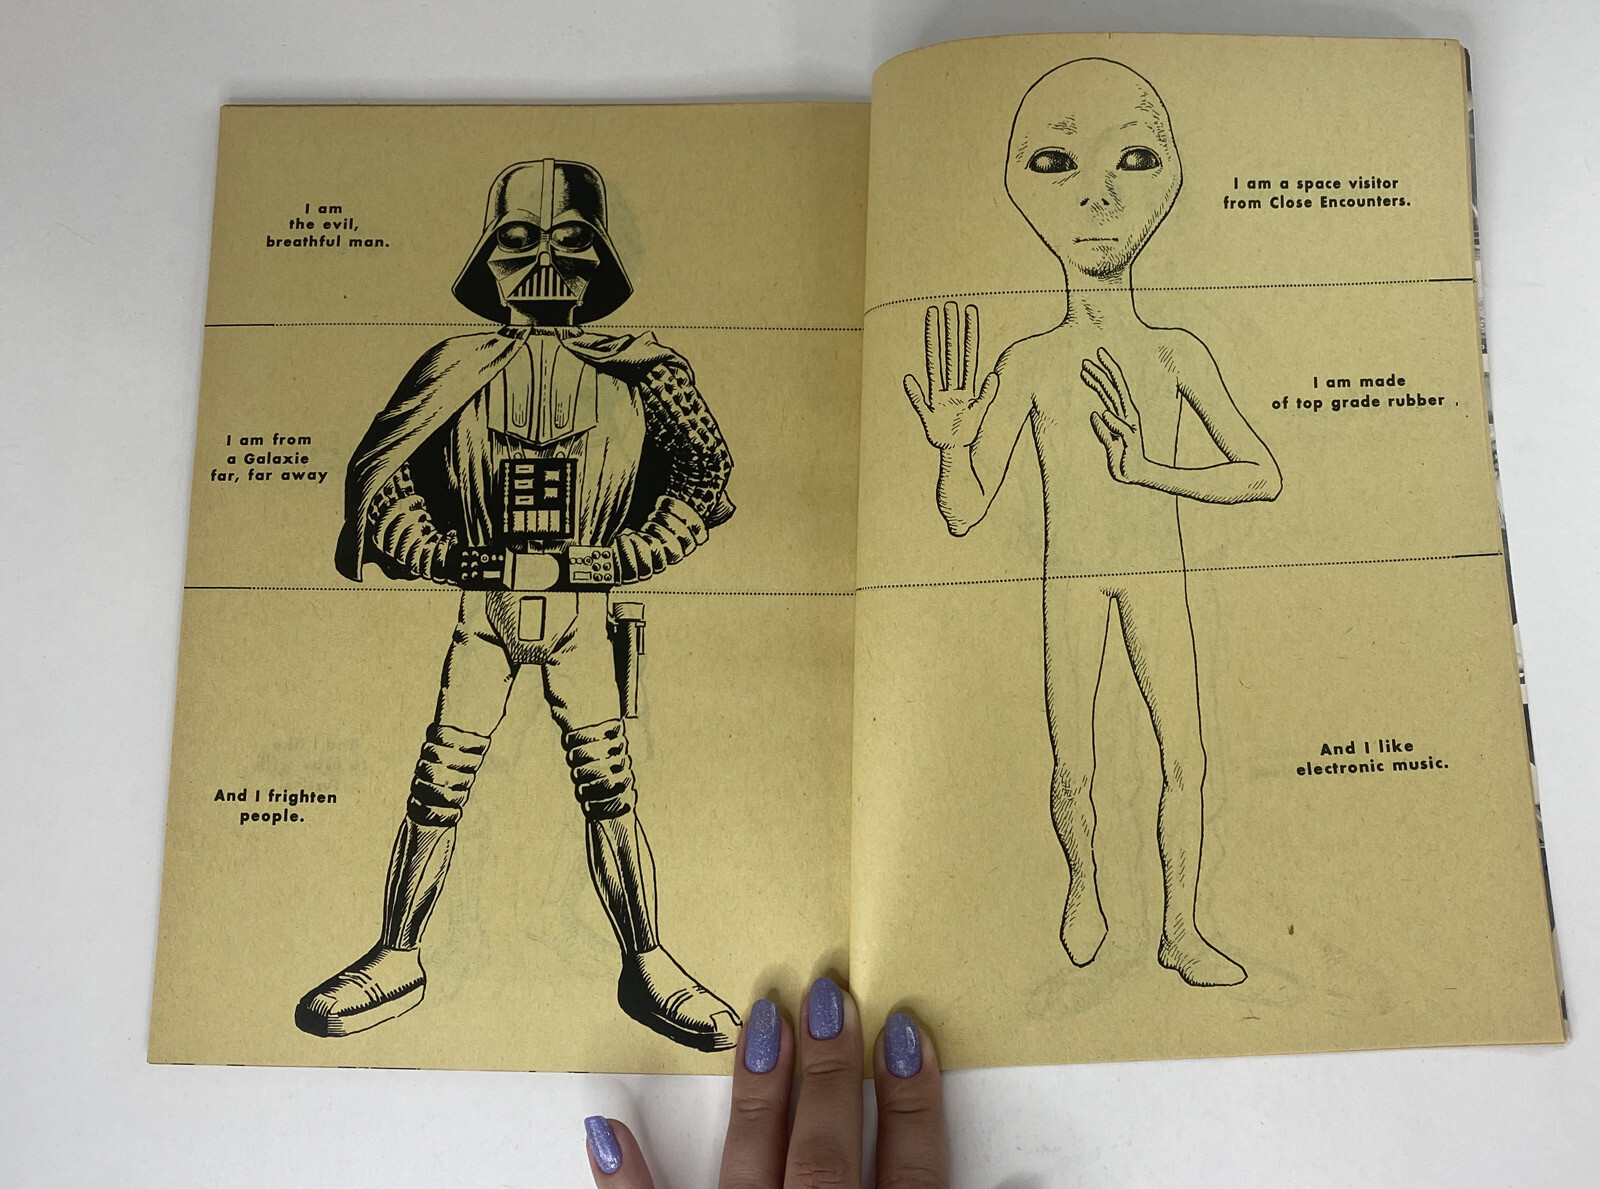 I am
the evil,
breathful man.
I am from
a Galaxie
far, far away
And I frighten
people.
I am a space visitor
from Close Encounters.
I am made
of top grade rubber .
And I like
electronic music.